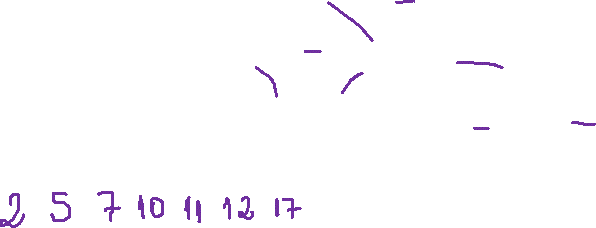 2 5 7 10 11 12 17